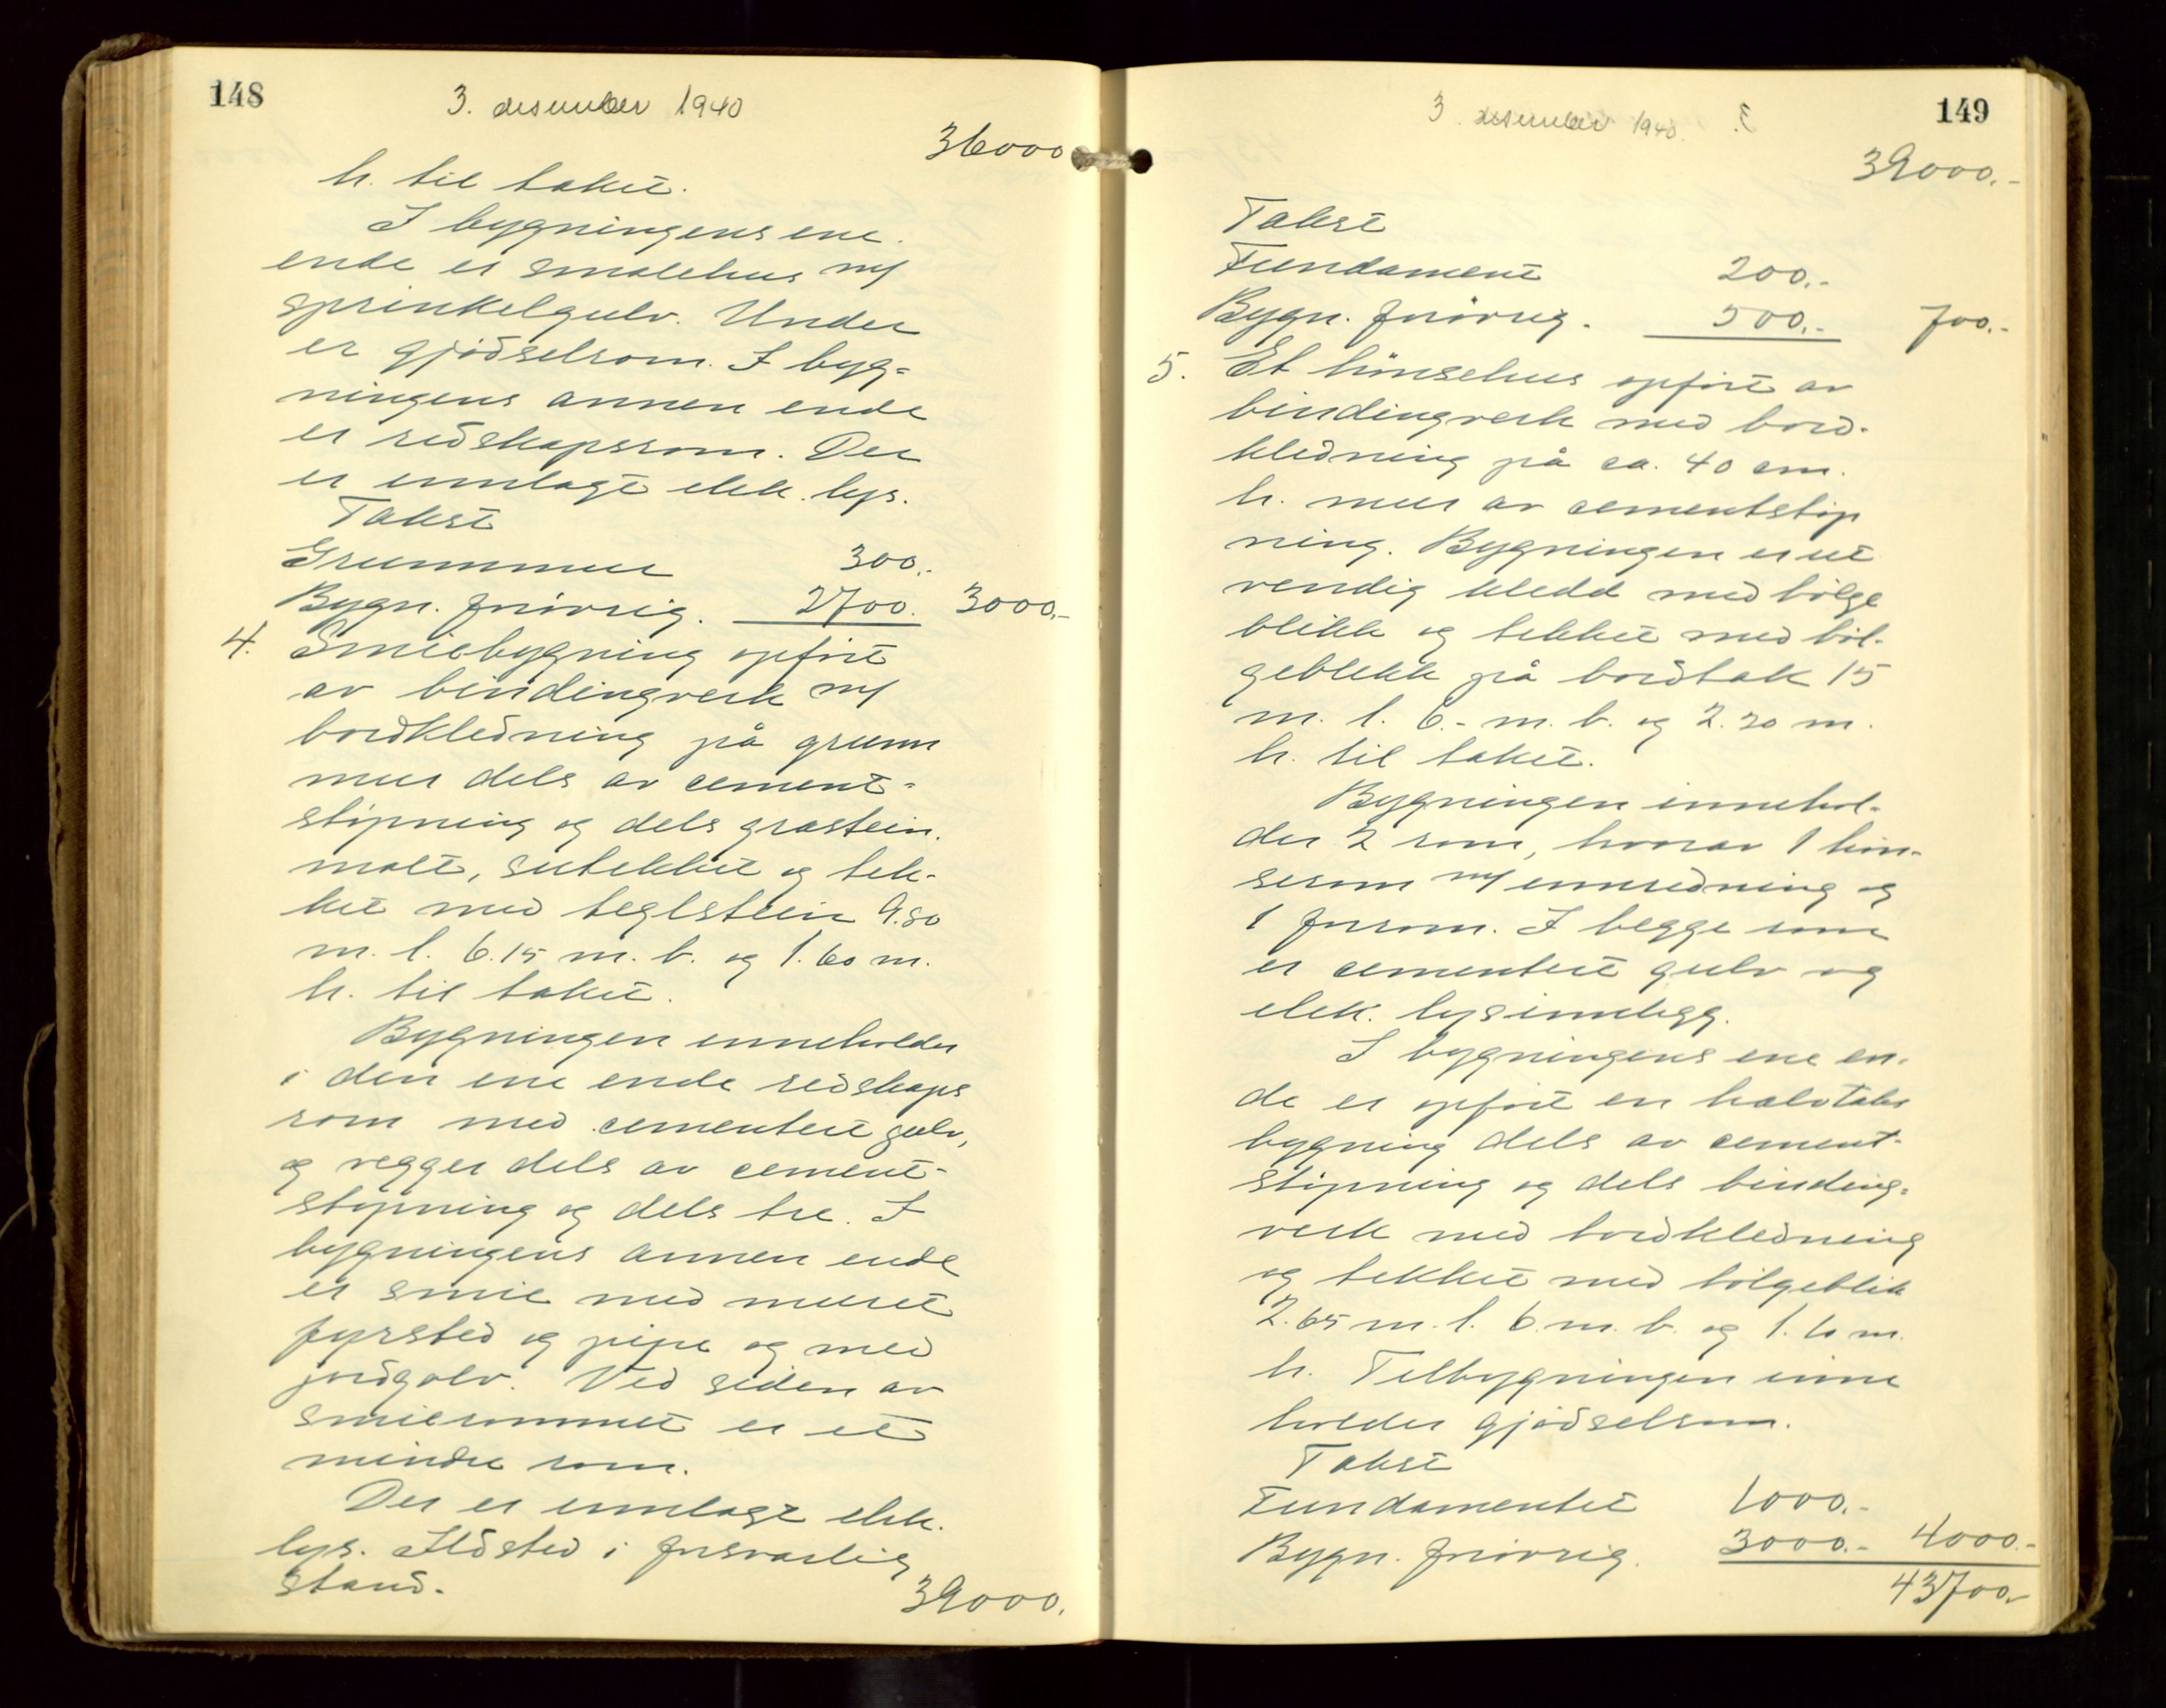 148
3. desember 1940
36000
h. til taket.
I bygningens ene
ende er smalehus m/
sprinkelgulv. Under
er gjødselrom. I byg-
ningens annen ende
er redskapsrom. Der
er innlagt elek. lys.
Takst
Grunnmur 300.-
Bygn. forøvrig. 2700. 3000.-
4. Smiebygning opført
av bindingverk m/
bordkledning på grunn
mur dels av cement-
støpning og dels gråstein.
malt, sutekket og tek-
ket med teglstein 9.80
m. l. 6.15 m. b. og 1.60 m.
h. til taket.
Bygningen inneholder
i den ene ende redskaps
rom med cementert gulv,
og vegger dels av cement-
støpning og dels tre. I
bygningens annen ende
er smie med muret
fyrsted og pipe og med
jordgolv. Ved siden av
smierommet er et
mindre rom.
Der er innlagt elek.
lys. Ildsted i forsvarlig
stand.
39000.
149
3. desember 1940.
39000.-
Takst
Fundament 200.-
Bygn. forøvrig. 500.- 700.-
5. Et hønsehus opført av
bindingverk med bord-
kledning på ca. 40 cm.
h. mur av cementstøp
ning. Bygningen er ut
vendig kledd med bølge
blikk og tekket med bøl-
geblikk på bordtak 15
m. l. 6.- m. b. og 2.20 m.
h. til taket.
Bygningen innehol-
der 2 rom, hvorav 1 høn-
serom m/ innredning og
1 forrom. I begge rom
er cementert gulv og
elek. lysinnlegg.
I bygningens ene en-
de er opført en halvtaks
bygning dels av cement-
støpning og dels binding-
verk med bordkledning
og tekket med bølgeblik
2.65 m. l. 6 m. b. og 1. m.
h. Tilbygningen inne
holder gjødselrom.
Takst
Fundamentet 1000.-
Bygn. forøvrig. 3000.- 4000.-
43700.-